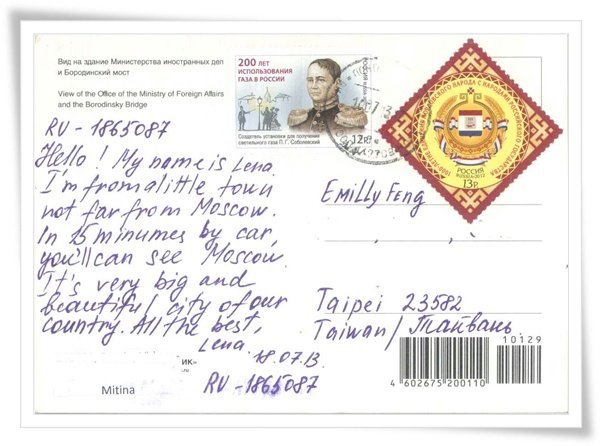 Вид на здание Министерства иностранных дел
и Бородинский мост
View of the Office of the Ministry of Foreign Affairs
and the Borodinsky Bridge
RU-1865087
Hello! My name is Lena.
I'm from a little town
not far from Moscow.
In 15 minumes by car,
you'll can see Moscow.
It's very big and
beautiful city of our
country. All the best,
Lena
18.07.13
RU-1865087
Mitina
200 ЛЕТ
ИСПОЛЬЗОВАНИЯ
ГАЗА В РОССИИ
Создатель установки для получения
светильного газа П.Г. Соболевский
РОССИЯ
RUSSIA·2012
13р.
EMILLY FENG
Taipei 23582
Taiwan/Тайвань
10129
4 602675 200110